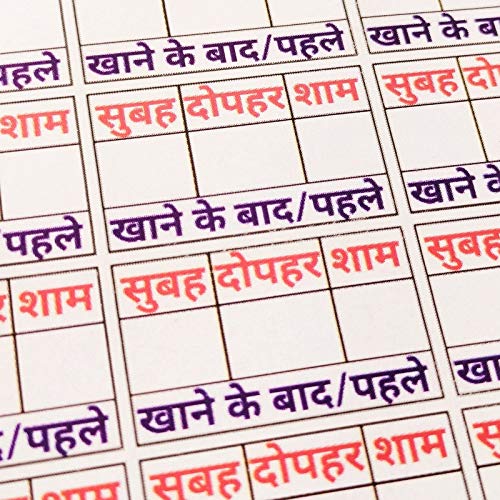 पहले खाने के बाद/पहले खाने के बाद
शाम सुबह दोपहर शाम सुबह
पहले खाने के बाद/पहले खाने के
शाम सुबह दोपहर शाम सुबह
पहले खाने के बाद/पहले खाने
सुबह दोपहर शाम